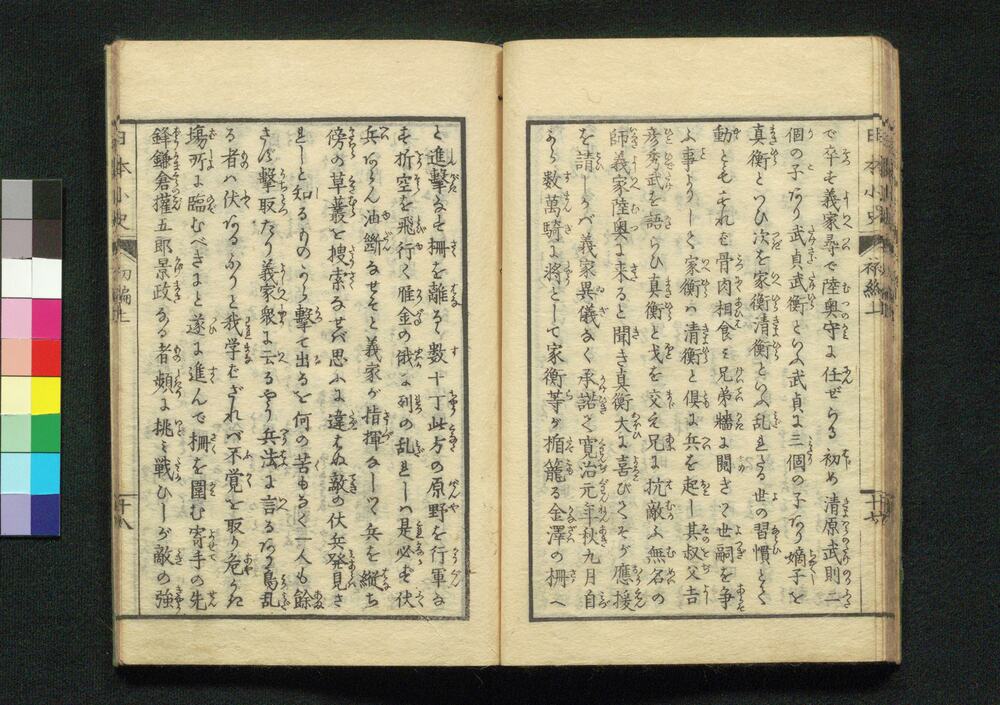 日本小史
初編上
十七
で卒せ義家尋で陸奥守に任ぜらる初め清原武則二
個の子あり武貞武衡といふ武貞に三個の子あり嫡子を
真衡といひ次を家衡清衡といふ乱れたる世の習慣として
動ともすれば骨肉相食み兄弟牆に鬪ぎつ世嗣を争
ふ事ありしく家衡ハ清衡と倶に兵を起し其叔父吉
彦秀武を語らひ真衡と戈を交え兄に抗敵ふ無名の
師義家陸奥に来ると聞き真衡大に喜びてそが應援
を請しかバ義家異儀なく承諾く寛治元年秋九月自
から数萬騎に将として家衡等が楯籠る金澤の柵へ
と進撃なせ柵を離るゝ数十丁此方の原野を行軍な
す折空を飛行く雁金の俄に列の乱れしハ是必ず伏
兵あらん油断なせそと義家が指揮なしつゝ兵を縦ち
傍の草叢を捜索なせバ思ふに違はぬ敵の伏兵発見さ
れしと知るものから撃て出るを何の苦もなく一人も餘
さず撃取たり義家衆に云るやう兵法に言るあり鳥乱
るる者ハ伏あるなりと我学ざれバ不覚を取り危うき
場所に臨むべきにと遂に進んで柵を圍む寄手の先
鋒鎌倉權五郎景政なる者頻に挑み戦ひしが敵の強
日本小史
初編上
十八